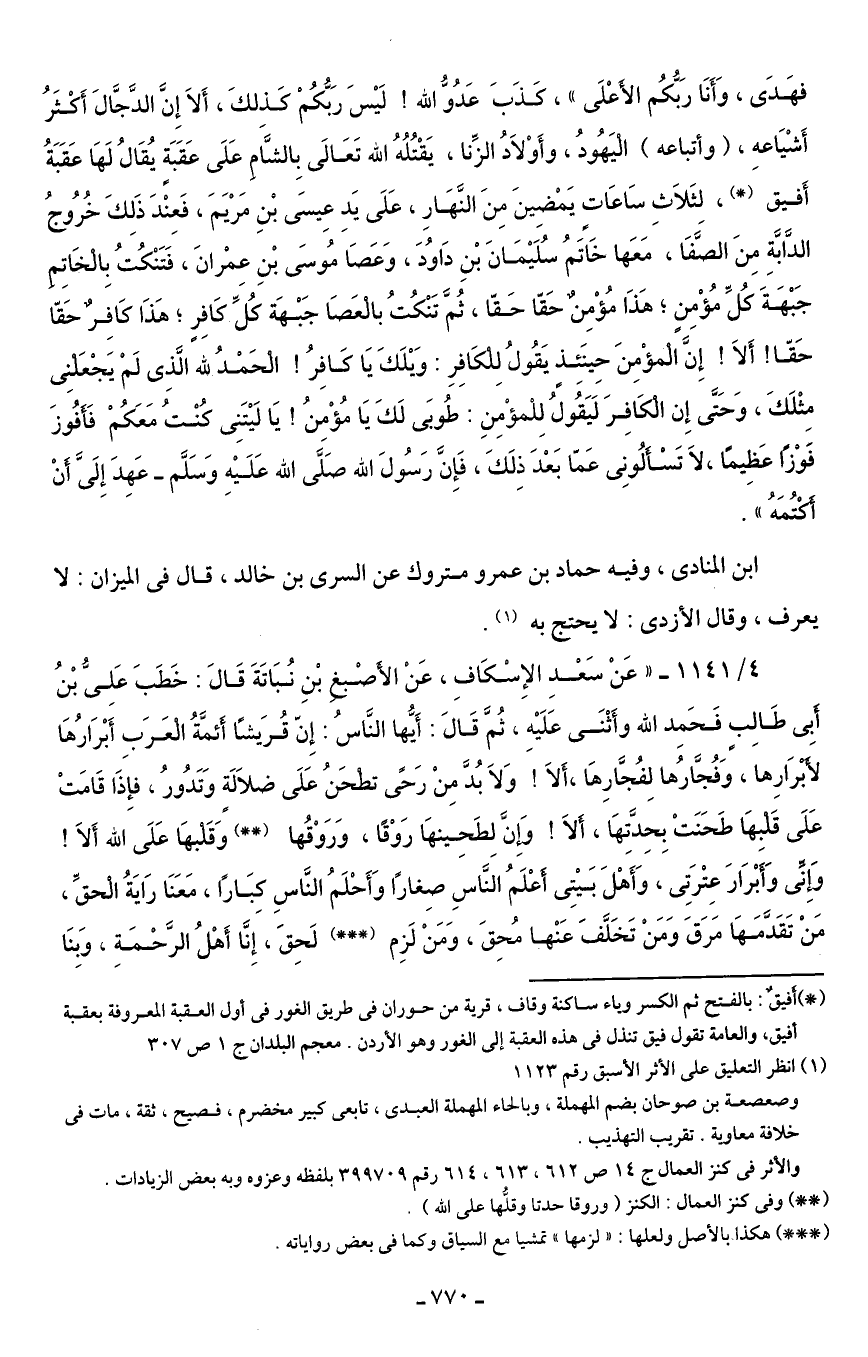 فَهَدَى ، وَأَنَا رَبُّكُم الأَعْلَى » ، كَذَبَ عَدُوُّ الله ! لَيْسَ رَبُّكُمْ كَذلكَ ، أَلاَ إِنَّ الدَّجَّالَ أَكْثَرُ
أَشْيَاعه ، ( وأتباعه ) الْيَهُودُ ، وأَوْلاَدُ الزِّنا ، يَقْتُلُهُ الله تَعَالَى بالشَّام عَلَى عَقَبَةٍ يُقَالُ لَهَا عَقَبَةُ
أَفيق (*) ، لثَلاَث سَاعَاتٍ يَمْضينَ منَ النَّهَار ، عَلَى يَد عيسَى بْنِ مَرْيَمَ ، فَعنْدَ ذَلكَ خُرُوجُ
الدَّابَّة منَ الصَّفَا ، مَعَها خَاتَمُ سُلَيْمَانَ بْنِ دَاوُدَ ، وَعَصَا مُوسَى بْنِ عمْرانَ ، فَتَنْكُتُ بالْخَاتِم
جَبْهَةَ كُلِّ مُؤْمنٍ ؛ هَذَا مُؤْمنٌ حَقّا حَقّا ، ثُمَّ تَنْكُتُ بالْعَصَا جَبْهَة كُلِّ كَافرٍ ؛ هَذَا كَافرٌ حَقّا
حَقّا! أَلاَ ! إنَّ الْمؤْمنَ حينَئذٍ يَقُولُ للْكَافرِ : وَيْلَكَ يَا كَافرُ ! الْحَمْدُ لله الَّذى لَمْ يَجْعَلْنى
مثْلَكَ ، وَحَتَّى إن الْكَافرَ لَيَقُولُ للْمؤْمنِ : طُوبَى لَكَ يَا مُؤْمنُ ! يَا لَيْتَنى كُنْتُ مَعَكُمْ فَأَفُوزَ
فَوْزًا عَظيمًا ،لاَ تَسْأَلُونى عَمّا بَعْدَ ذَلكَ ، فَإنَّ رَسُولَ الله صَلَّى الله عَلَيْه وَسَلَّم ـ عَهدَ إلَىَّ أَنْ
أَكْتُمَهُ » .
ابن المنادى ، وفيه حماد بن عمرو متروك عن السرى بن خالد ، قال فى الميزان : لا
يعرف ، وقال الأزدى : لا يحتج به (١) .
٤/ ١١٤١ ـ « عَنْ سَعْد الإسْكَاف ، عَنْ الأَصْبغِ بْنِ نُبَاتَةَ قَالَ : خَطَبَ عَلىُّ بْنُ
أَبى طَالبٍ فَحَمد الله وأَثْنَى عَلَيْه ، ثُمَّ قَالَ : أَيُّها النَّاسُ : إنّ قُرَيشًا أَئمَّةُ الْعَرَبِ أَبْرَارُهَا
لأَبْرَارها ، وَفُجَّارُها لفُجَّارهَا ،أَلاَ ! وَلاَ بُدَّ منْ رَحًى تطْحَنُ عَلَى ضلاَلَةٍ وَتَدُورُ ، فَإذَا قَامَتْ
عَلَى قَلْبهَا طَحَنَتْ بحدَّتهَا ، أَلاَ ! وإنَّ لطَحينهَا رَوْقًا ، وَرَوْقُها (**) وَقَلْبهَا عَلَى الله أَلاَ !
وَإنِّى وَأَبْرَارَ عتْرَتى ، وَأَهْلَ بَيْتى أَعْلَمُ النَّاسِ صغارًا وَأَحْلَمُ النَّاسِ كبَارًا ، مَعَنَا رَايَةُ الْحَقِّ ،
مَنْ تَقَدَّمَهَا مَرَقَ وَمَنْ تَخَلَّفَ عَنْهَا مُحقَ ، وَمَنْ لَزِم (***) لَحقَ ، إنَّا أَهْلُ الرَّحْمَة ، وَبنَا
(*) أفيقٌ : بالفتح ثم الكسر وياء ساكنة وقاف ، قرية من حوران فى طريق الغور فى أول العقبة المعروفة بعقبة
أفيق، والعامة تقول فيق تنذل فى هذه العقبة إلى الغور وهو الأردن . معجم البلدان ج ١ ص ٣٠٧
(١) انظر التعليق على الأثر الأسبق رقم ١١٢٣
وصعصعة بن صوحان بضم المهملة ، وبالحاء المهملة العبدى ، تابعى كبير مخضرم ، فصيح ، ثقة ، مات فى
خلافة معاوية . تقريب التهذيب .
والأثر فى كنز العمال ج ١٤ ص ٦١٢ ، ٦١٣ ، ٦١٤ رقم ٣٩٩٧٠٩ بلفظه وعزوه وبه بعض الزيادات .
(**) وفى كنز العمال : الكنز ( وروقا حدتا وقلُّها على الله ) .
(***) هكذا بالأصل ولعلها : « لزمها » تمشيا مع السياق وكما فى بعض رواياته .
ـ ٧٧٠ ـ